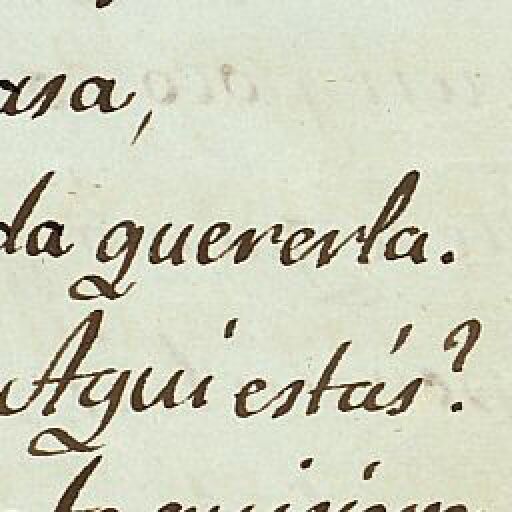 asa,
da quererla.
Aqui estás?